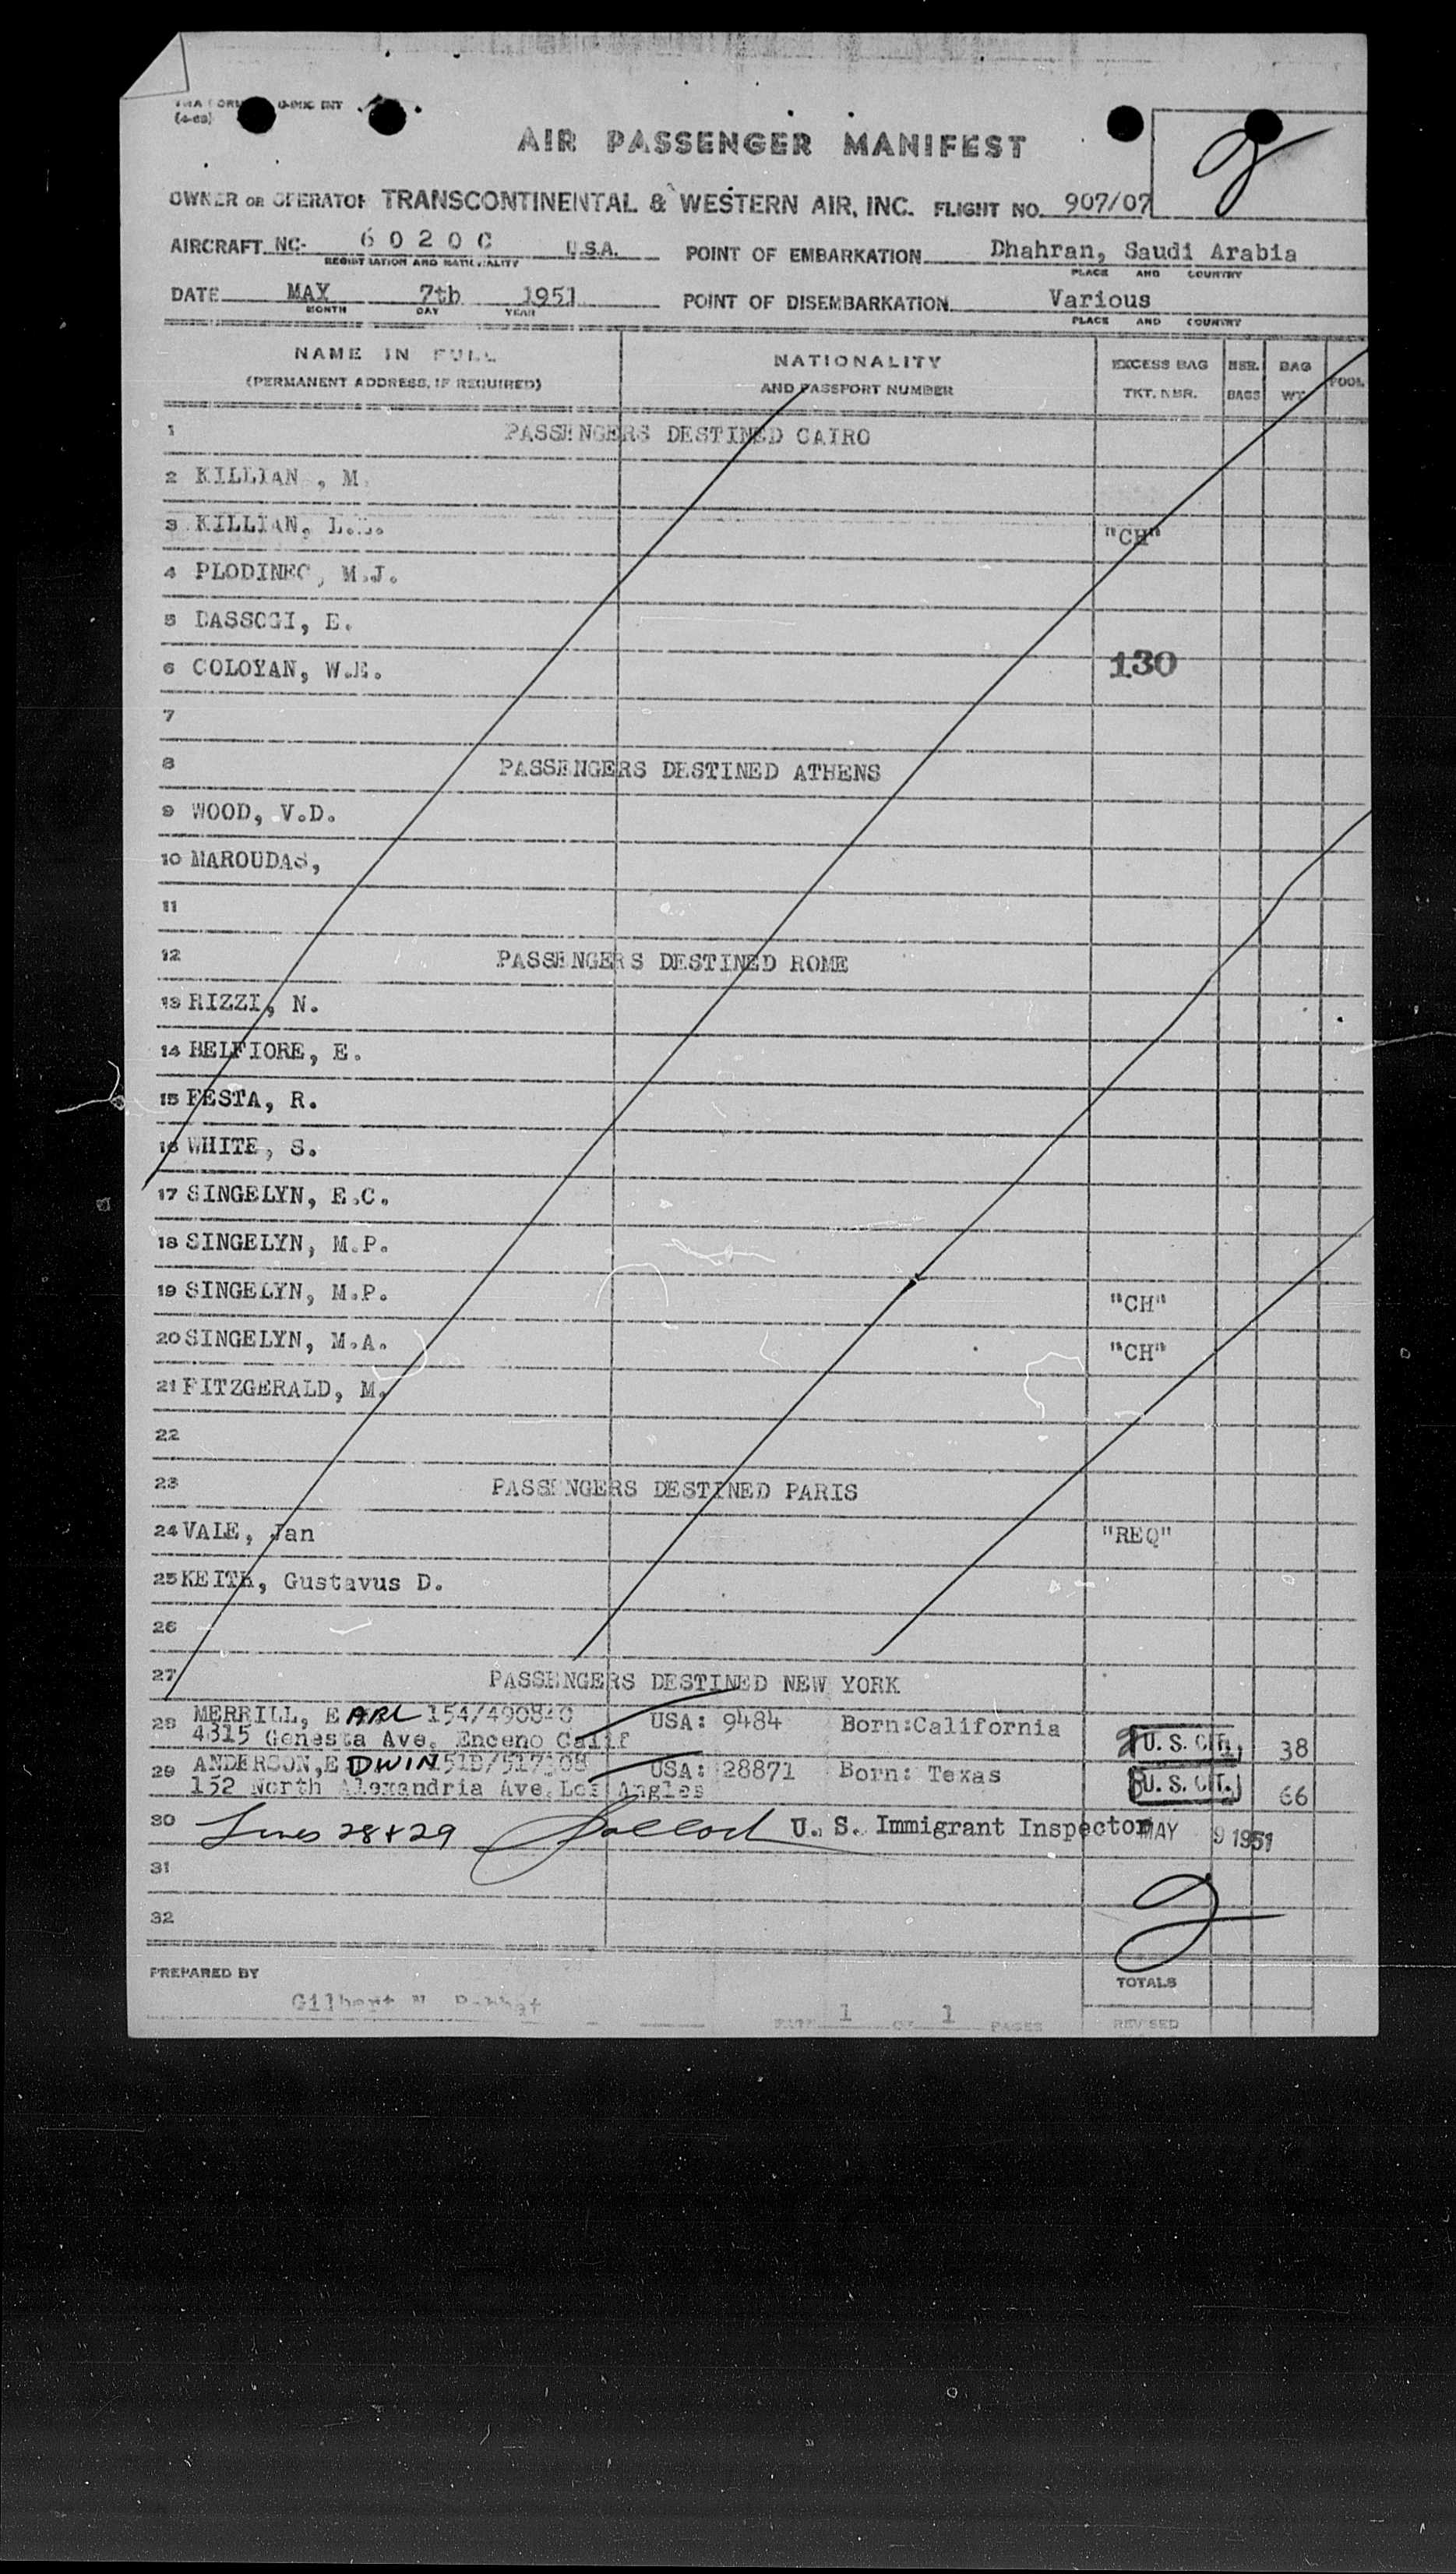 (4-68)
2
AIR PASSENGER MANIFEST
OWNER OR OPERATOR TRANSCONTINENTAL & WESTERN AIR, INC. FLIGHT NO. 907/07
AIRCRAFT NC- 6 0 2 0 C U.S.A. POINT OF EMBARKATION Dhahran, Saudi Arabia
REGISTRATION AND NATIONALITY PLACE AND COUNTRY
DATE MAY 7th 1951 POINT OF DISEMBARKATION Various
MONTH DAY YEAR PLACE AND COUNTRY
NAME IN FULL NATIONALITY EXCESS BAG NBR. BAG
(PERMANENT ADDRESS, IF REQUIRED) AND PASSPORT NUMBER TKT. NBR. BAGS WT. POOL
1 PASSENGERS DESTINED CAIRO
2 KILLIAN , M.
3 KILLIAN, "CH"
4 PLODINEC, M.J.
5 E.
6 COLOYAN, W.E. 130
7
8 PASSENGERS DESTINED ATHENS
9 WOOD, V.D.
10 MAROUDAS,
11
12 PASSENGERS DESTINED ROME
13 RIZZI, N.
14 BELFIORE, E.
15 FESTA, R.
16 WHITE, S.
17 SINGELYN, E.C.
18 SINGELYN, M.P.
19 SINGELYN, M.P. "CH"
20 SINGELYN, M.A. "CH"
21 FITZGERALD, M.
22
23 PASSENGERS DESTINED PARIS
24 VALE, Jan "REQ"
25 KEITH, Gustavus D.
26
27 PASSENGERS DESTINED NEW YORK
28 MERRILL, EARL 154/490840 USA: 9484 Born:California U. S. CIT. 38
4815 Genesta Ave. Enceno Calif
29 ANDERSON,EDWIN USA: 28871 Born: Texas U. S. CIT. 66
152 North Alexandria Ave.Los Angles
30 Lines 28 & 29 U. S. Immigrant Inspector MAY 9 1951
31
32
2
PREPARED BY TOTALS
Gilbert N.
1 OF 1 PAGES REVISED